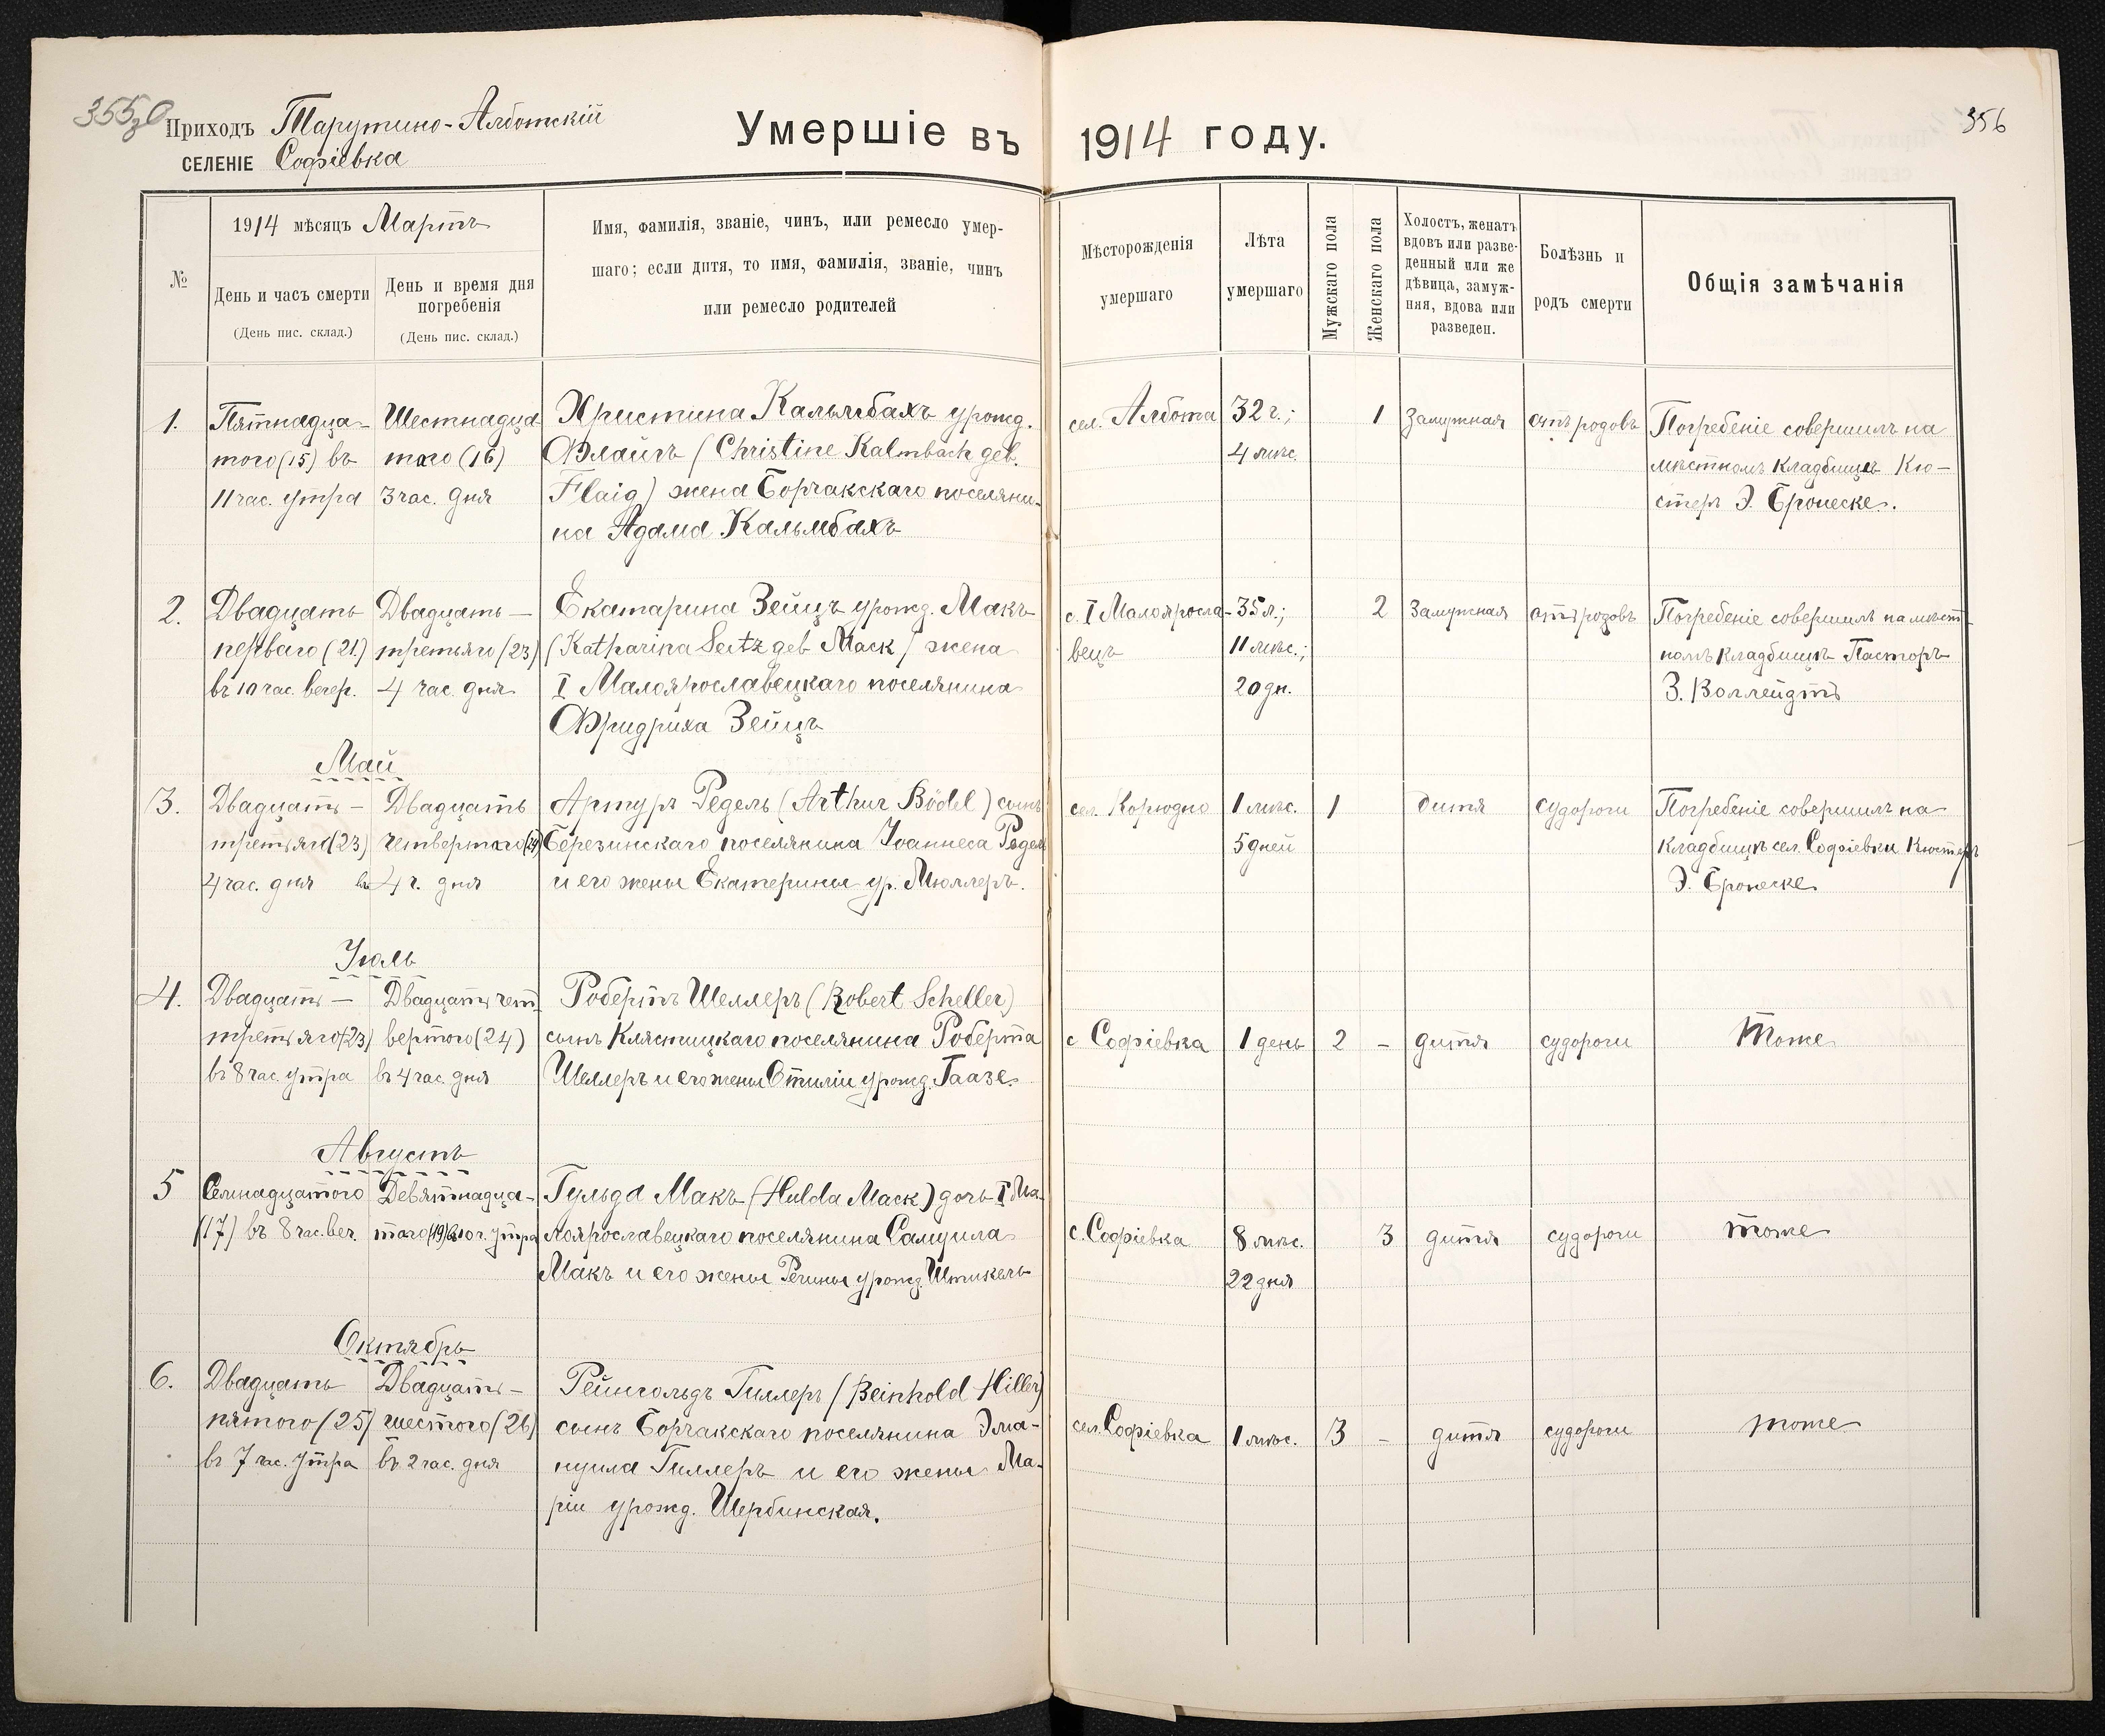 355
Приходъ Тарутино-Алботскій
СЕЛЕНІЕ Софіевка
Умершіе въ 1914 году.
356
№
1914 мѣсяцъ Мартъ
День и часъ смерти
(День пис. склад.)
День и время дня
погребенія
(День пис. склад.)
Имя, фамилія, званіе, чинъ, или ремесло умер-
шаго; если дитя, то имя, фамилія, званіе, чинъ
или ремесло родителей
Мѣсторожденія
умершаго
Лѣта
умершаго
Мужскаго пола
Женскаго пола
Холостъ, женатъ
вдовъ или разве-
денный или же
дѣвица, замуж-
няя, вдова или
разведен.
Болѣзнь и
родъ смерти
Общія замѣчанія
1.
Пятнадца-
того (15) въ
11 час. утра
Шестнадца
таго (16)
3 час. дня
Христина Кальмбахъ урожд.
Флайгъ (Christine Kalmbach geb.
Flaig) жена Борчакскаго поселяни-
на Адама Кальмбахъ
сел. Албота
32 г.;
4 мѣс.
1
Замужная
отъ родовъ
Погребеніе совершилъ на
мѣстномъ кладбищѣ Кю-
стеръ Э. Бронеске.
2.
Двадцать
перваго (21)
въ 10 час. вечер.
Двадцать-
третьяго (23)
4 час. дня
Екатарина Зейцъ урожд. Макъ
(Katharina Seitz geb Mack) жена
I Малоярославецкаго поселянина
Фридриха Зейцъ
с. I Малояросла-
вецъ
35 л.;
11 мѣс.;
20 дн.
2
Замужная
отъ родовъ
Погребеніе совершилъ на мѣст-
номъ кладбищѣ Пасторъ
З. Воллейдтъ
Май
3.
Двадцать-
третьяго (23)
4 час. дня
Двадцать
четвертаго (24)
въ 4 ч. дня
Артуръ Редель (Arthur Rödel) сынъ
Березинскаго поселянина Іоаннеса Редель
и его жены Екатерины ур. Мюллеръ.
сел. Корюдно
1 мѣс.
5 дней
1
дитя
судороги
Погребеніе совершилъ на
кладбищѣ сел. Софіевки Кюстеръ
Э. Бронеске
Іюль
4.
Двадцать-
третьяго (23)
въ 8 час. утра
Двадцать чет-
вертого (24)
въ 4 час. дня
Робертъ Шеллеръ (Robert Scheller)
сынъ Клястицкаго поселянина Роберта
Шеллеръ и его жены Отиліи урожд. Гаазе.
с Софіевка
1 день
2
-
дитя
судороги
Тоже
Августъ
5
Семнадцатого
(17) въ 8 час. веч.
Девятнадца-
таго (19) въ 10 ч. утра
Гульда Макъ (Hulda Mack) дочь I Ма-
лоярославецкаго поселянина Самуила
Макъ и его жены Регины урожд. Штикель
с. Софіевка
8 мѣс.
22 дня
3
дитя
судороги
тоже
Октябрь
6.
Двадцать
пятого (25)
въ 7 час. утра
Двадцать-
шестого (26)
въ 2 час. дня
Рейнгольдъ Гиллеръ (Reinhold Hiller)
сынъ Борчакскаго поселянина Эма-
нуила Гиллеръ и его жены Ма-
ріи урожд. Шербинская.
сел. Софіевка
1 мѣс.
3
-
дитя
судороги
тоже